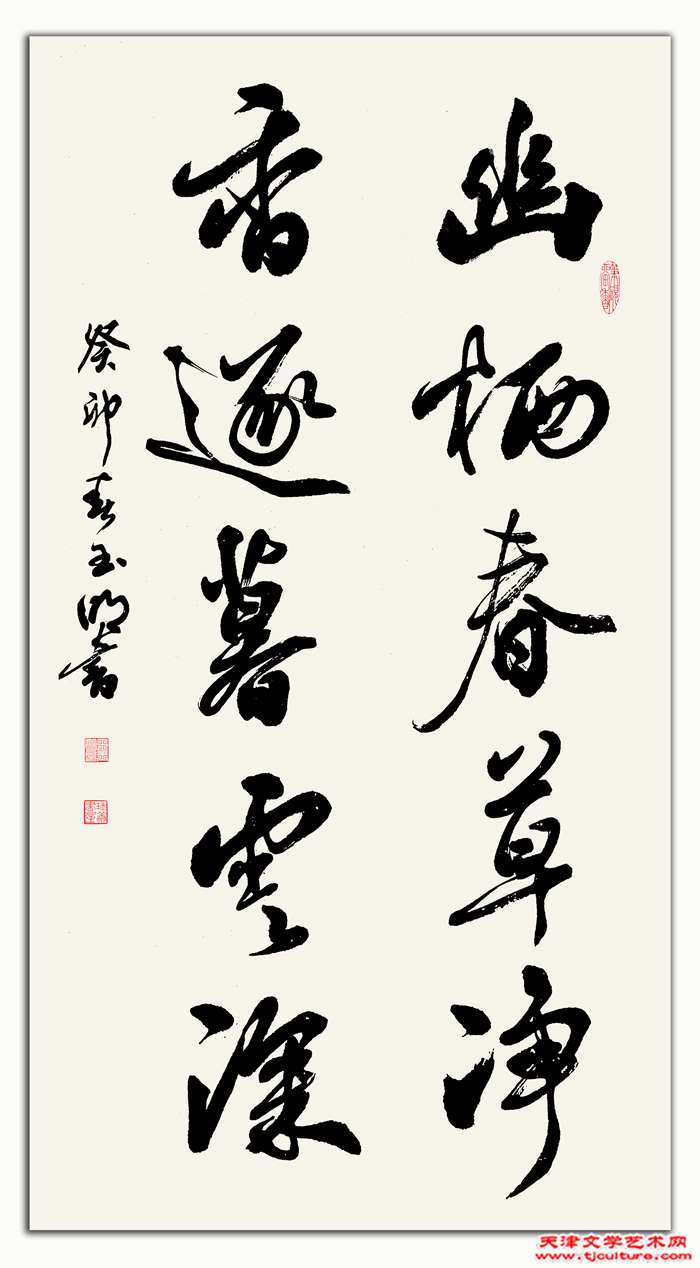 幽栖春草净
香逐暮雲深
癸卯春玉明書
天津文学艺术网
www.tjculture.com